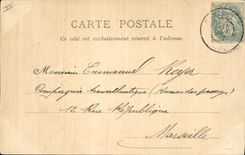 CARTE POSTALE
Ce côté est exclusivement réservé à l'adresse.
Monsieur Emmanuel Royer
Compagnie transatlantique (Bureau des passages)
12 Rue République
Marseille